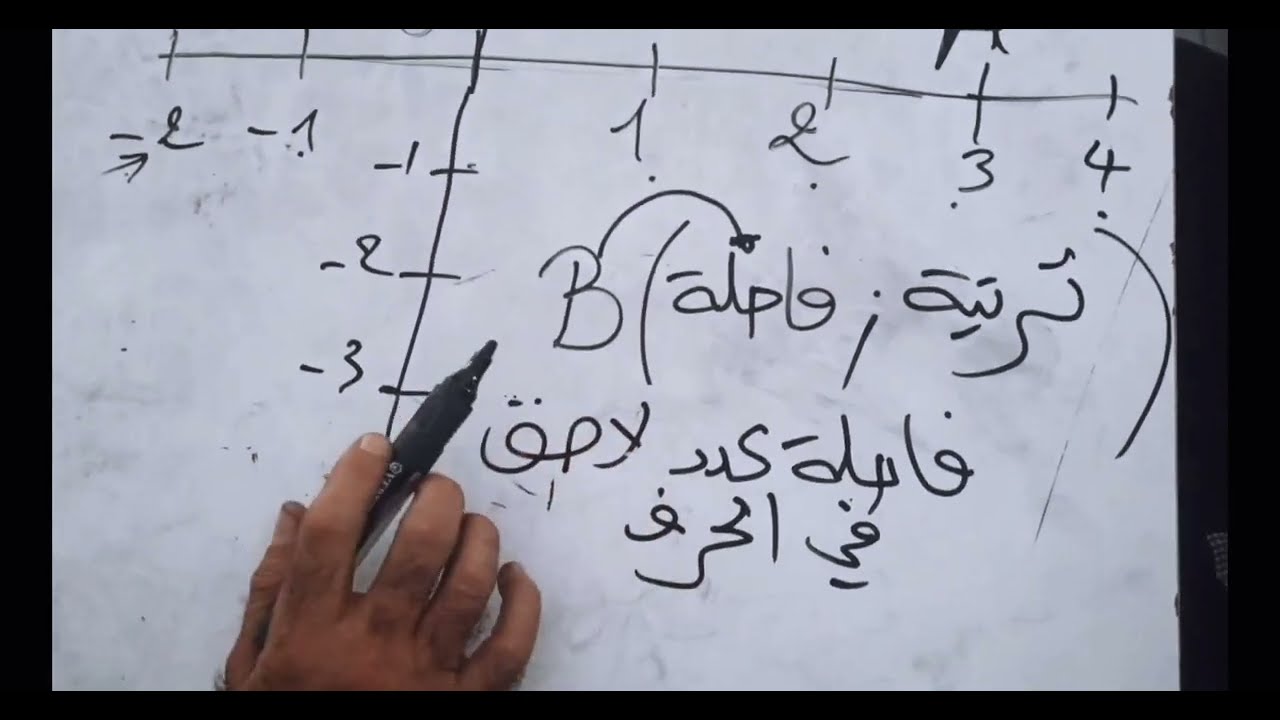 A
-2 -1 1 2 3 4
-1
-2
-3
B(فاصلة ; ترتيبة)
فاصلة عدد لاصق
في الحرف